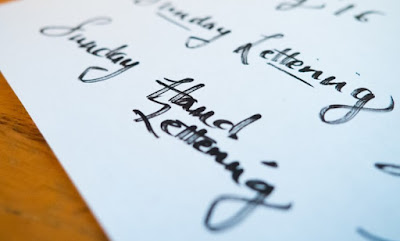 16
Sunday Lettering
Sunday Hand
Lettering